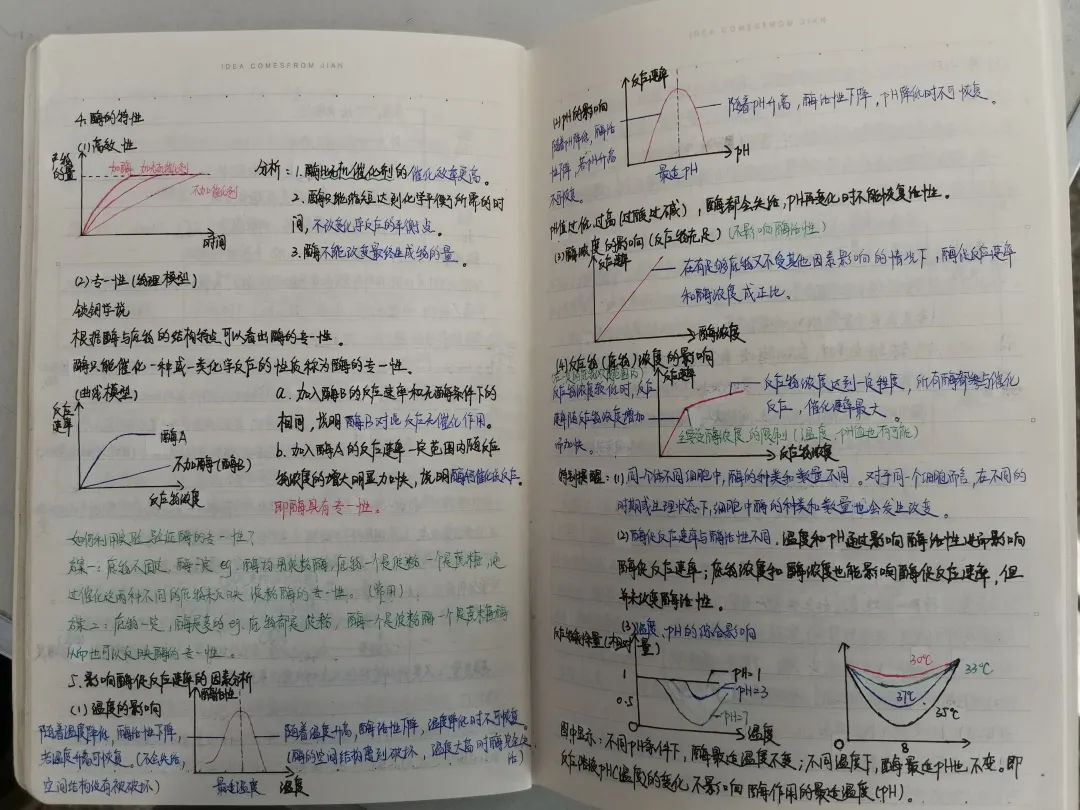 IDEA COMESFROM JIAN
4.酶的特性
(1)高效性
产物的量
加酶 加无机催化剂
不加催化剂
时间
分析：1.酶比无机催化剂的催化效率更高。
2.酶只能缩短达到化学平衡所需的时
间，不改变化学反应的平衡点。
3.酶不能改变最终生成物的量。
(2)专一性(物理模型)
锁钥学说
根据酶与底物的结构特点可以看出酶的专一性。
酶只能催化一种或一类化学反应的性质称为酶的专一性。
(曲线模型)
反应速率
酶A
不加酶(酶B)
反应物浓度
a.加入酶B的反应速率和无酶条件下的
相同，说明酶B对此反应无催化作用。
b.加入酶A的反应速率一定范围内随反应
物浓度的增大明显加快，说明酶A能催化该反应。
即酶具有专一性。
如何利用实验验证酶的专一性？
方案一：底物不同，酶一定 eg.酶均用淀粉酶，底物一个是淀粉一个是蔗糖，通
过催化这两种不同的底物来反映淀粉酶的专一性。(常用)
方案二：底物一定，酶是变的 eg.底物都是淀粉，酶一个是淀粉酶一个是蔗糖酶
从而也可以反映酶的专一性。
5.影响酶促反应速率的因素分析
(1)温度的影响
酶活性
随着温度降低，酶活性下降，
若温度升高可恢复。(不会失活，
空间结构没有被破坏)
最适温度 温度
随着温度升高，酶活性下降，温度降低时不可恢复。
(酶的空间结构遭到破坏，温度太高时酶完全失活)
(2)pH的影响
反应速率
随着pH降低，酶活
性下降，若pH升高
不可恢复。
最适pH
pH
随着pH升高，酶活性下降，pH降低时不可恢复。
pH值过低过高(过酸过碱)，酶都会失活，pH再变化时不能恢复活性。
(3)酶浓度的影响(反应物充足)(不影响酶活性)
反应速率
酶浓度
在有足够底物又不受其他因素影响的情况下，酶促反应速率
和酶浓度成正比。
(4)反应物(底物)浓度的影响
反应速率
反应物浓度较低时，反应
速率随反应物浓度增加
而加快。
反应物浓度达到一定程度，所有酶都参与催化
反应，催化速率最大。
主要受酶浓度的限制(温度、pH值也有可能)
反应物浓度
特别提醒：(1)同一个体不同细胞中，酶的种类和数量不同。对于同一个细胞而言，在不同的
时期或生理状态下，细胞中酶的种类和数量也会发生改变。
(2)酶促反应速率与酶活性不同。温度和pH通过影响酶活性进而影响
酶促反应速率；底物浓度和酶浓度也能影响酶促反应速率，但
并未改变酶活性。
(3)温度、pH的综合影响
反应物剩余量(相对量)
1
0.5
0
pH=1
pH=3
pH=7
温度
30℃
33℃
37℃
35℃
0
8
图中显示：不同pH条件下，酶最适温度不变；不同温度下，酶最适pH也不变。即
反应溶液pH(温度)的变化不影响酶作用的最适温度(pH)。